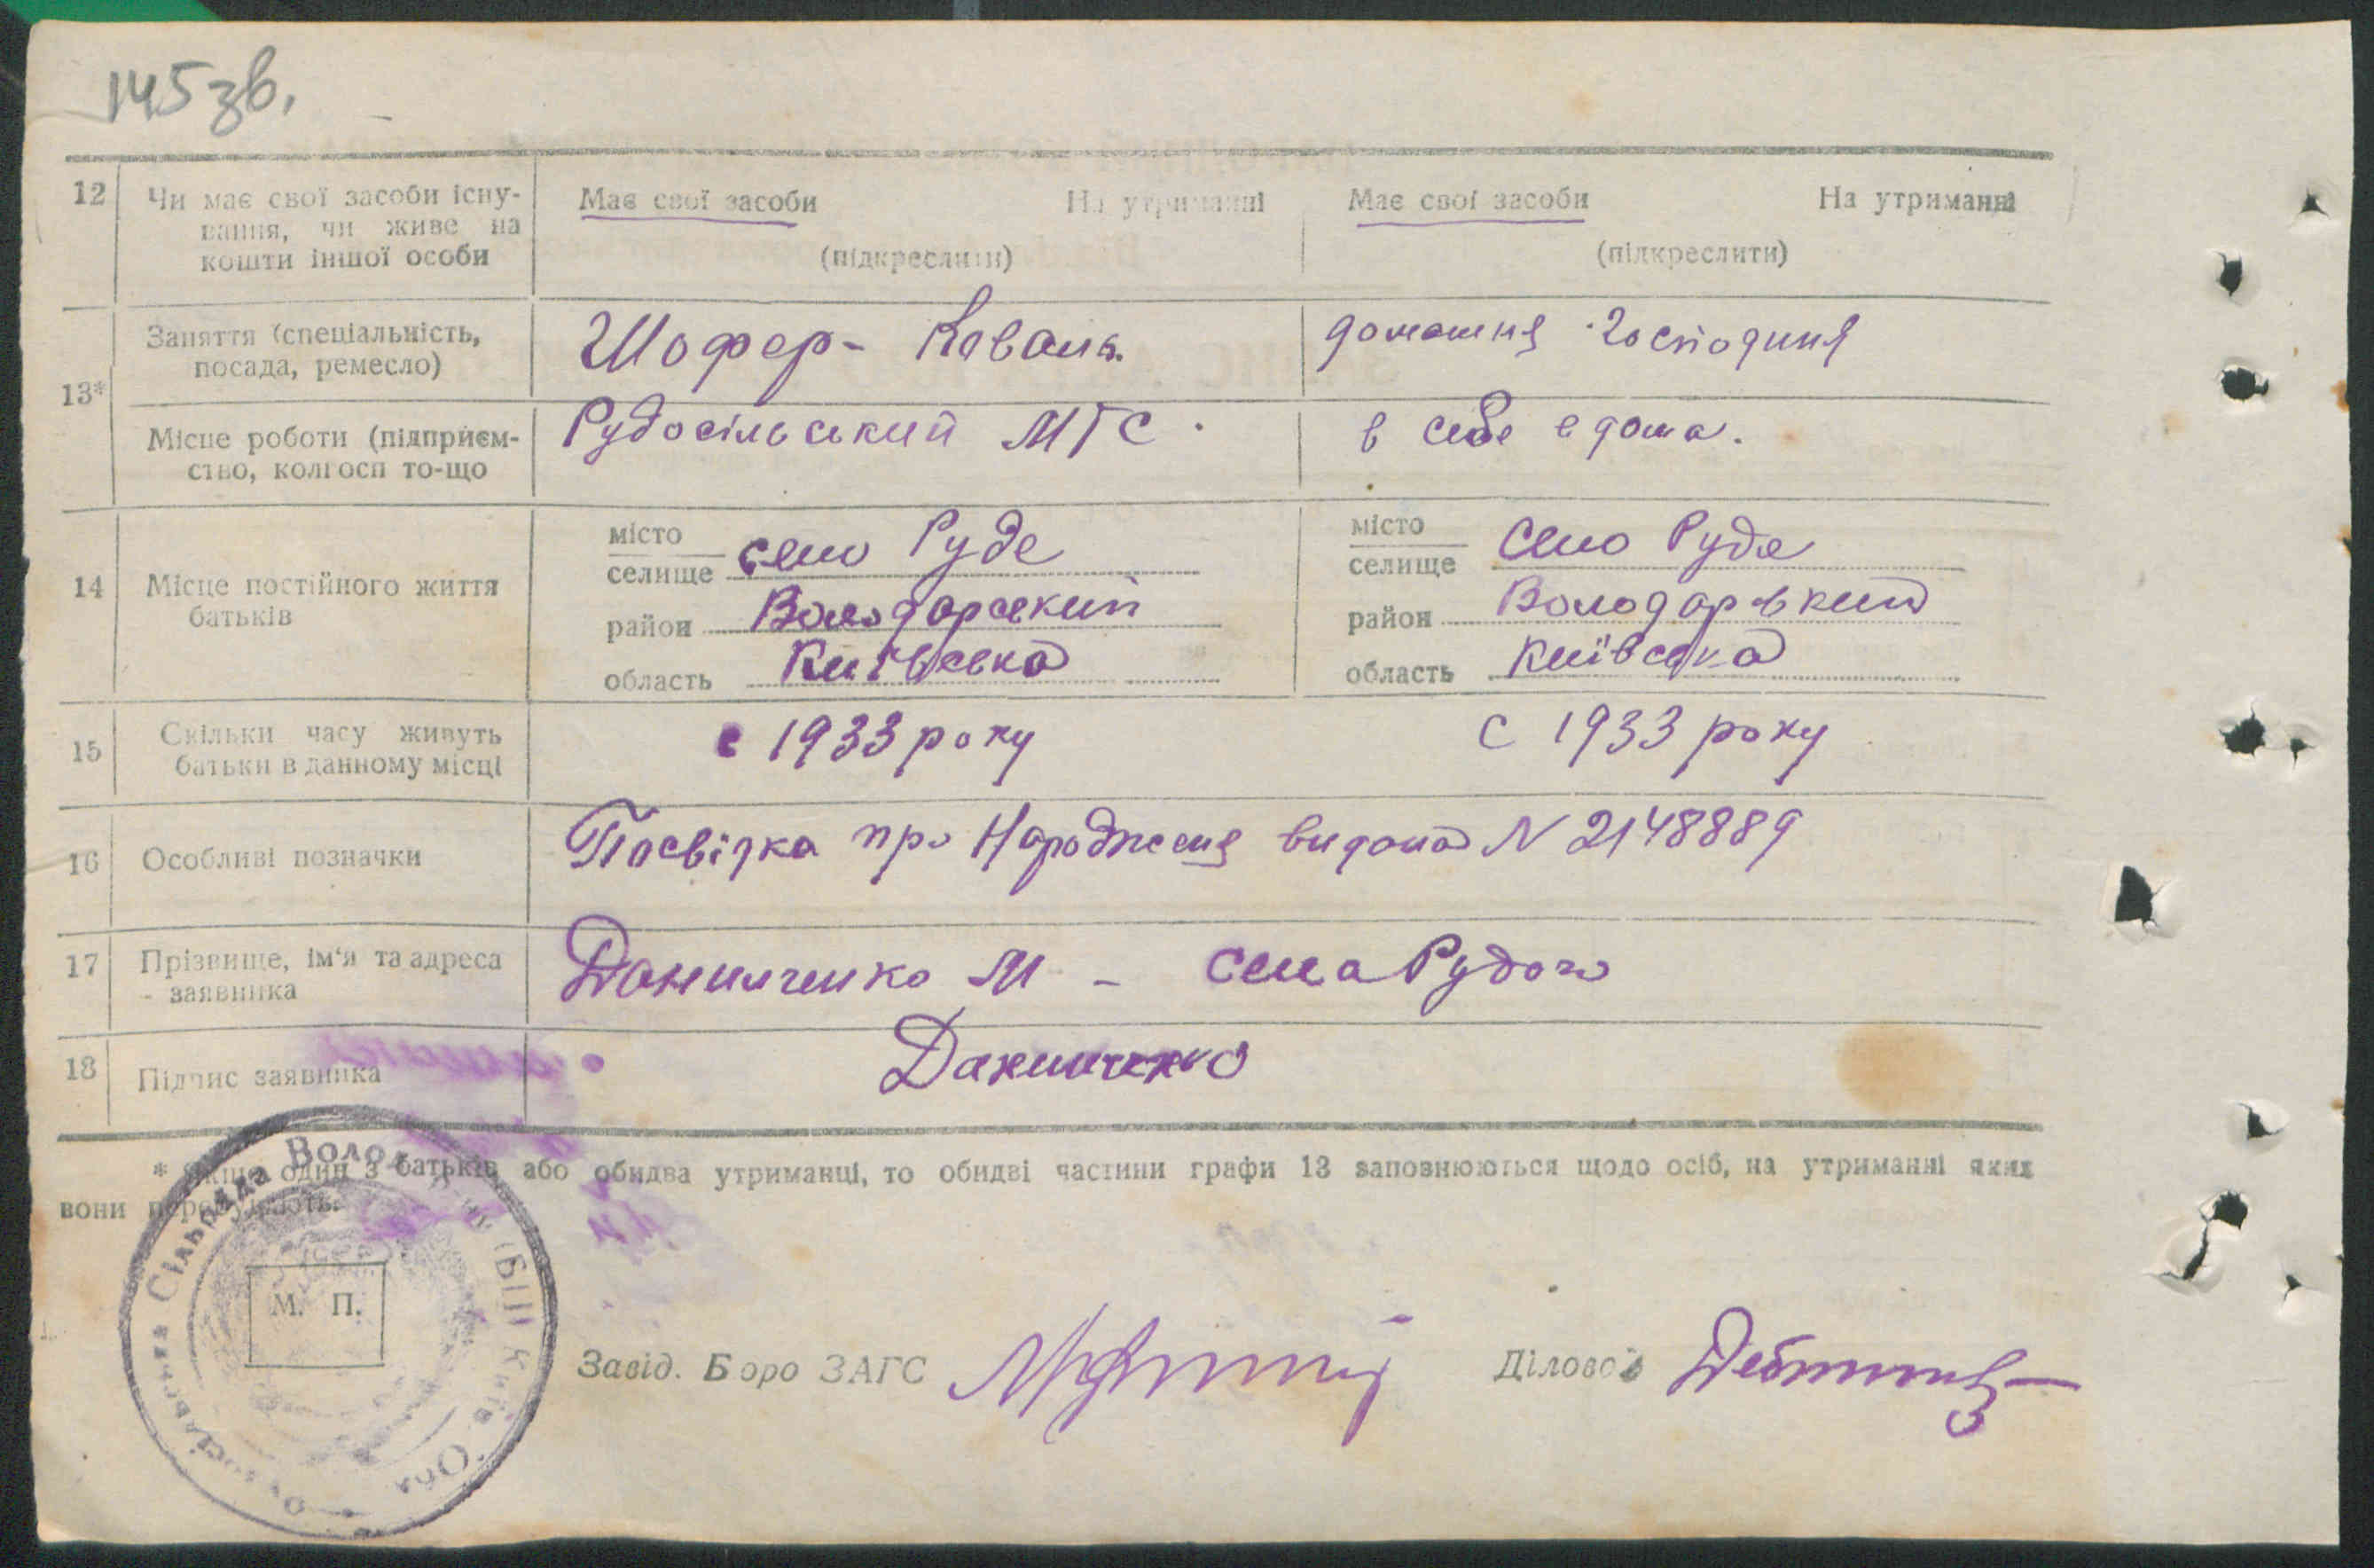 145 зв.
12 Чи має свої засоби існу- Має свої засоби На утриманні Має свої засоби На утриманні
вання, чи живе на
кошти іншої особи (підкреслити) (підкреслити)
Заняття (спеціальність, Шофер - Коваль. домашня господиня
посада, ремесло)
13*
Місце роботи (підприєм- Рудосільський МТС. в себе в дома.
ство, колгосп то-що
місто село Руде місто село Руде
селище селище
14 Місце постійного життя район Володарський район Володарвкий
батьків
область Київська область Київська
15 Скільки часу живуть с 1933 року с 1933 року
батьки в данному місці
16 Особливі позначки Посвідка про Народженя видана N 2148889
17 Прізвище, ім'я та адреса Данилченко М - села Рудого
- заявника
18 Підпис заявника Данилченко
* Якщо один з батьків або обидва утриманці, то обидві частини графи 13 заповнюються щодо осіб, на утриманні яких
вони перебувають.
Сільрада Воло
Київ Обл
М. П.
Завід. Бюро ЗАГС Діловод